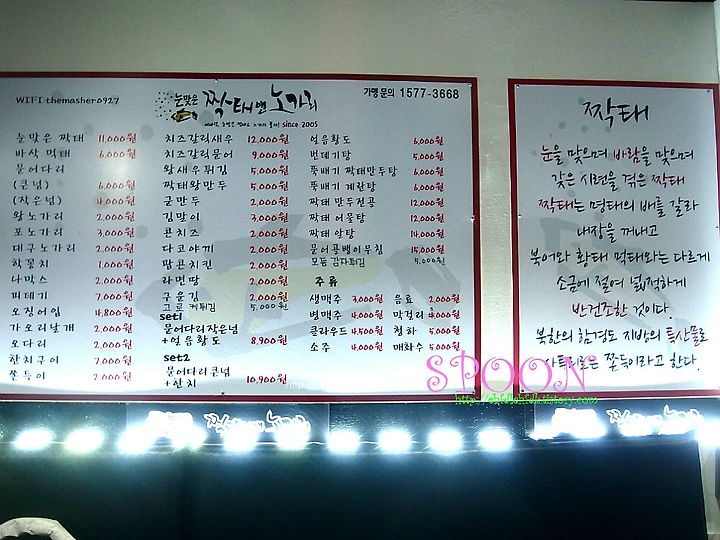 WIFI themasher0927
눈맞은 짝태앤 노가리
since 2005
가맹 문의 1577-3668
눈맞은 짝태 11,000원
바삭 먹태 6,000원
문어다리
(큰넘) 6,000원
(작은넘) 4,000원
왕노가리 2,000원
포노가리 3,000원
대구노가리 2,000원
학꽁치 1,000원
나막스 2,000원
쥐데기 7,000원
오징어입 4,800원
가오리날개 2,000원
오다리 2,000원
한치구이 7,000원
쫀득이 2,000원
치즈갈릭새우 12,000원
치즈갈릭문어 9,000원
왕새우튀김 5,000원
짝태왕만두 5,000원
군만두 2,000원
김말이 3,000원
콘치즈 2,000원
다코야끼 2,000원
팝콘치킨 2,000원
라면땅 2,000원
구운김 2,000원
고로케튀김 5,000원
set1
문어다리작은넘
+얼음황도 8,900원
set2
문어다리큰넘
+한치 10,900원
얼음황도 6,000원
번데기탕 5,000원
뚝배기 짝태만두탕 6,000원
뚝배기 계란탕 6,000원
짝태 만두전골 12,000원
짝태 어묵탕 12,000원
짝태 알탕 14,000원
문어골뱅이무침 15,000원
모듬 감자튀김 5,000원
주류
생맥주 3,000원 음료 2,000원
병맥주 4,000원 막걸리 4,000원
클라우드 4,500원 청하 5,000원
소주 4,000원 매화수 5,000원
짝태
눈을 맞으며 바람을 맞으며
갖은 시련을 겪은 짝태
짝태는 명태의 배를 갈라
내장을 꺼내고
북어와 황태 먹태와는 다르게
소금에 절여 넓적하게
반건조한 것이다.
북한의 함경도 지방의 특산물로
사투리로는 쫀득이라고 한다.
SPOON